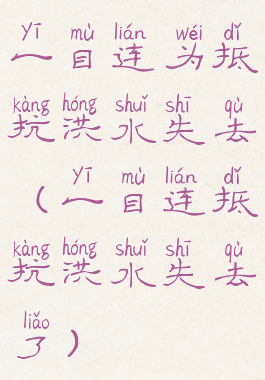 yī mù lián wéi dǐ
一目连为抵
kàng hóng shuǐ shī qù
抗洪水失去
yī mù lián dǐ
（一目连抵
kàng hóng shuǐ shī qù
抗洪水失去
liǎo
了）